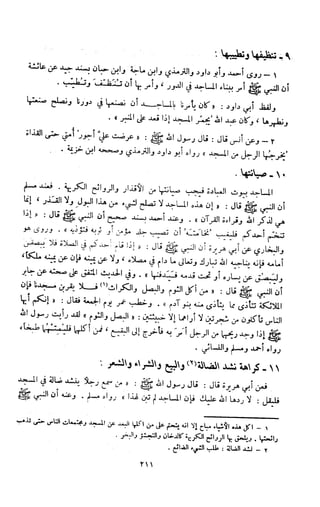 ٩ - تنظيفها وتطييبها :
١ - روى أحمد وأبو داود والترمذي وابن ماجة وابن حبان بسند جيد عن عائشة
أن النبي ﷺ أمر ببناء المساجد في الدور ، وأمر بها أن تنظف وتطيب .
ولفظ أبي داود : « كان يأمرنا بالمساجد أن نصنعها في دورنا ونصلح صنعتها
ونطهرها ، وكان عبد الله يجمر المسجد إذا قعد عمر على المنبر » .
٢ - وعن أنس قال : قال رسول الله ﷺ : « عرضت علي أجور أمتي حتى القذاة
يخرجها الرجل من المسجد » رواه أبو داود والترمذي وصححه ابن خزيمة .
١٠ - صيانتها :
المساجد بيوت العبادة فيجب صيانتها من الأقذار والروائح الكريهة . فعند مسلم
أن النبي ﷺ قال : « إن هذه المساجد لا تصلح لشيء من هذا البول ولا القذر ، إنما
هي لذكر الله وقراءة القرآن » . وعند أحمد بسند صحيح أن النبي ﷺ قال : « إذا
تنخم أحدكم فليغيب نخامته أن تصيب جلد مؤمن أو ثوبه فتؤذيه » . وروى هو
والبخاري عن أبي هريرة أن النبي ﷺ قال : « إذا قام أحدكم في الصلاة فلا يبصقن
أمامه فإنه يناجيه الله تبارك وتعالى ما دام في مصلاه ، ولا عن يمينه فإن عن يمينه ملكا ،
وليبصق عن يساره أو تحت قدمه فيدفنها » . وفي الحديث المتفق على صحته عن جابر
أن النبي ﷺ قال : « من أكل الثوم والبصل والكراث (١) فلا يقربن مسجدنا فإن
الملائكة تتأذى مما يتأذى منه بنو آدم » . وخطب عمر يوم الجمعة فقال : « إنكم أيها
الناس تأكلون من شجرتين لا أراهما إلا خبيثتين : « البصل والثوم » لقد رأيت رسول الله
ﷺ إذا وجد ريحهما من الرجل أمر به فأخرج إلى البقيع ، فمن أكلهما فليمتهما طبخا »
رواه أحمد ومسلم والنسائي .
١١ - كراهة نشد الضالة (٢) والبيع والشراء والشعر :
فعن أبي هريرة قال : قال رسول الله ﷺ : « من سمع رجلا ينشد ضالة في المسجد
فليقل : لا ردها الله عليك فإن المساجد لم تبن لهذا » رواه مسلم . وعنه أن النبي ﷺ
١ - أكل هذه الأشياء مباح إلا أنه يتحتم على من أكلها البعد عن المسجد ومجتمعات الناس حتى تذهب
رائحتها . ويلحق بها الروائح الكريهة كالدخان والتجشؤ والبخر .
٢ - نشد الضالة : طلب الشيء الضائع .
٢١١